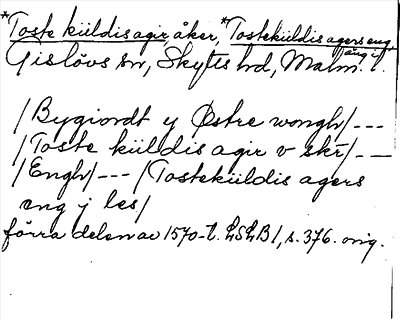 *Toste küldis agir, åker, *Tosteküldis agers eng, äng i
Gislövs sn, Skytts hd, Malm. l.
/Bygiordt y Østre wongh/---
/Toste küldis agir v skr̄/---
/Engh/--- /Tosteküldis agers
eng j les/
förra delen av 1570-t. LSLB1, s. 376. orig.